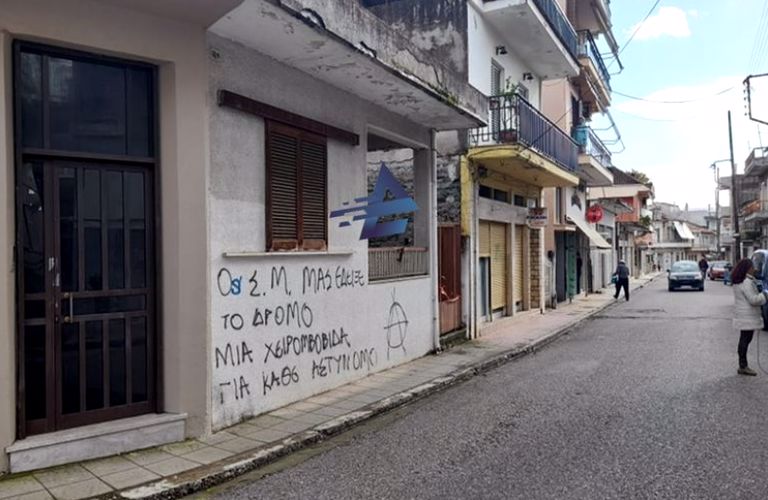 Ος Σ.Μ. ΜΑΣ ΕΔΕΙΞΕ
ΤΟ ΔΡΟΜΟ
ΜΙΑ ΧΕΙΡΟΜΒΟΒΙΔΑ
ΓΙΑ ΚΑΘΕ ΑΣΤΥΝΟΜΟ